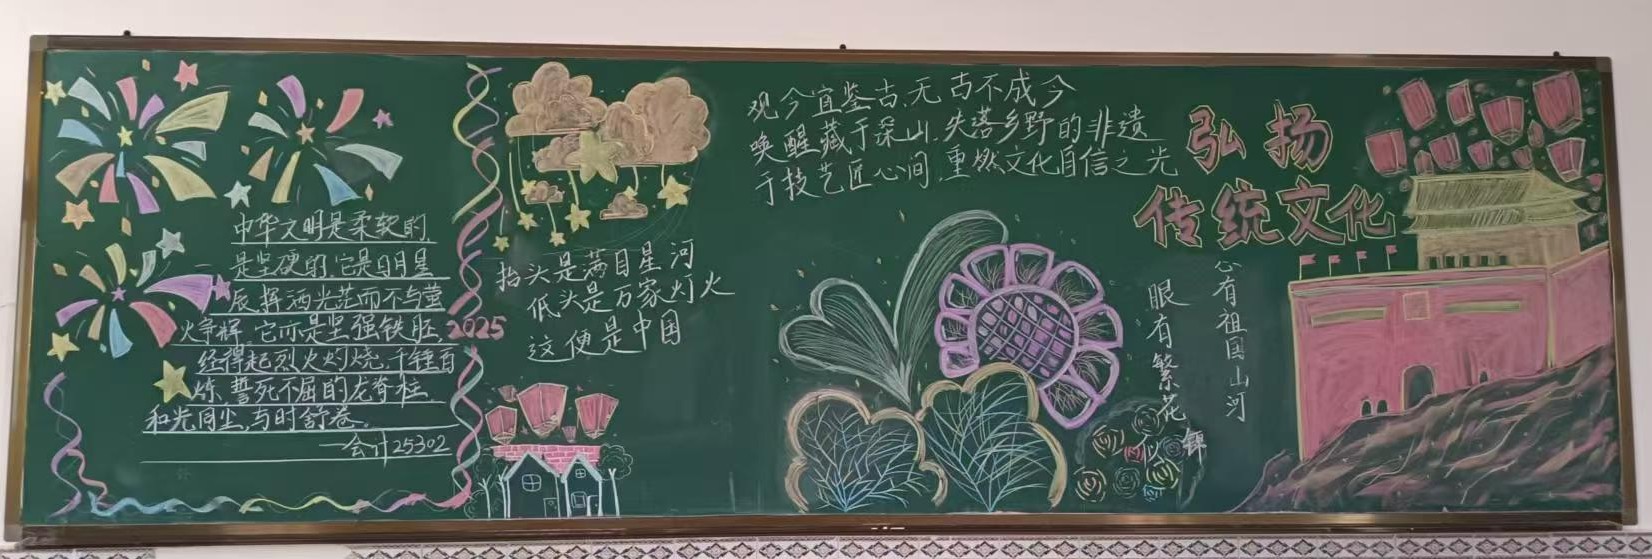 中华文明是柔软的,
是坚硬的,它是日月星
辰挥洒光茫而不与萤
火争辉,它亦是坚强铁胚,
经得起烈火灼烧,千锤百
炼,誓死不屈的龙脊柱.
和光同尘,与时舒卷。
—会计25302
2025
抬头是满目星河
低头是万家灯火
这便是中国
观今宜鉴古,无古不成今
唤醒藏于深山,失落乡野的非遗
于技艺匠心间,重燃文化自信之光
弘扬
传统文化
心有祖国山河
眼有繁花似锦